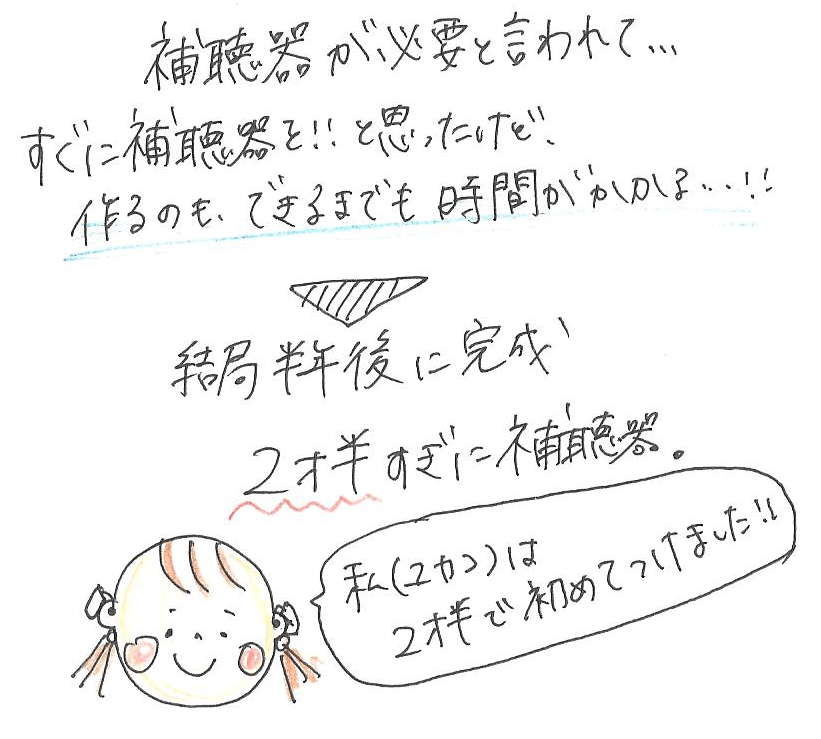 補聴器が必要と言われて...
すぐに補聴器を!!と思ったけど、
作るのも、できるまでも時間がかかる...!!
結局半年後に完成
2才半すぎに補聴器。
私(ユカコ)は
2才半で初めてつけました!!